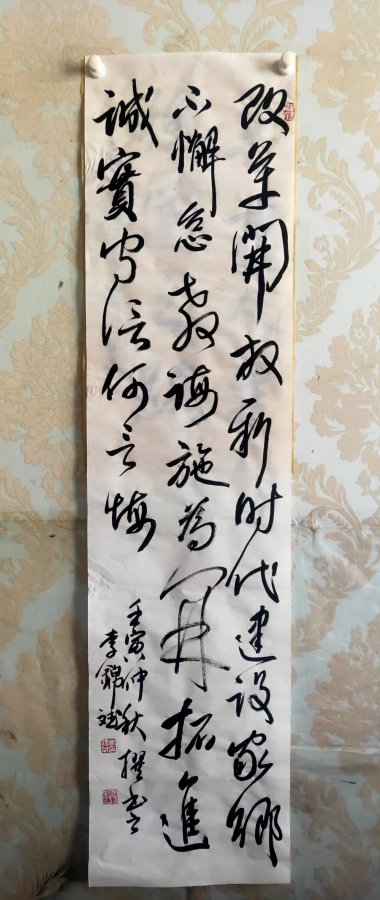 改革開放新时代建设家鄉
不懈怠教诲施為開拓進
誠實守信何言悔
壬寅仲秋撰书
李錦斌